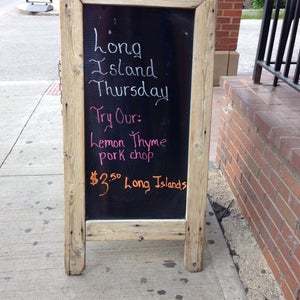 Long
Island
Thursday
Try Our:
Lemon Thyme
pork chop
$3.50 Long Islands